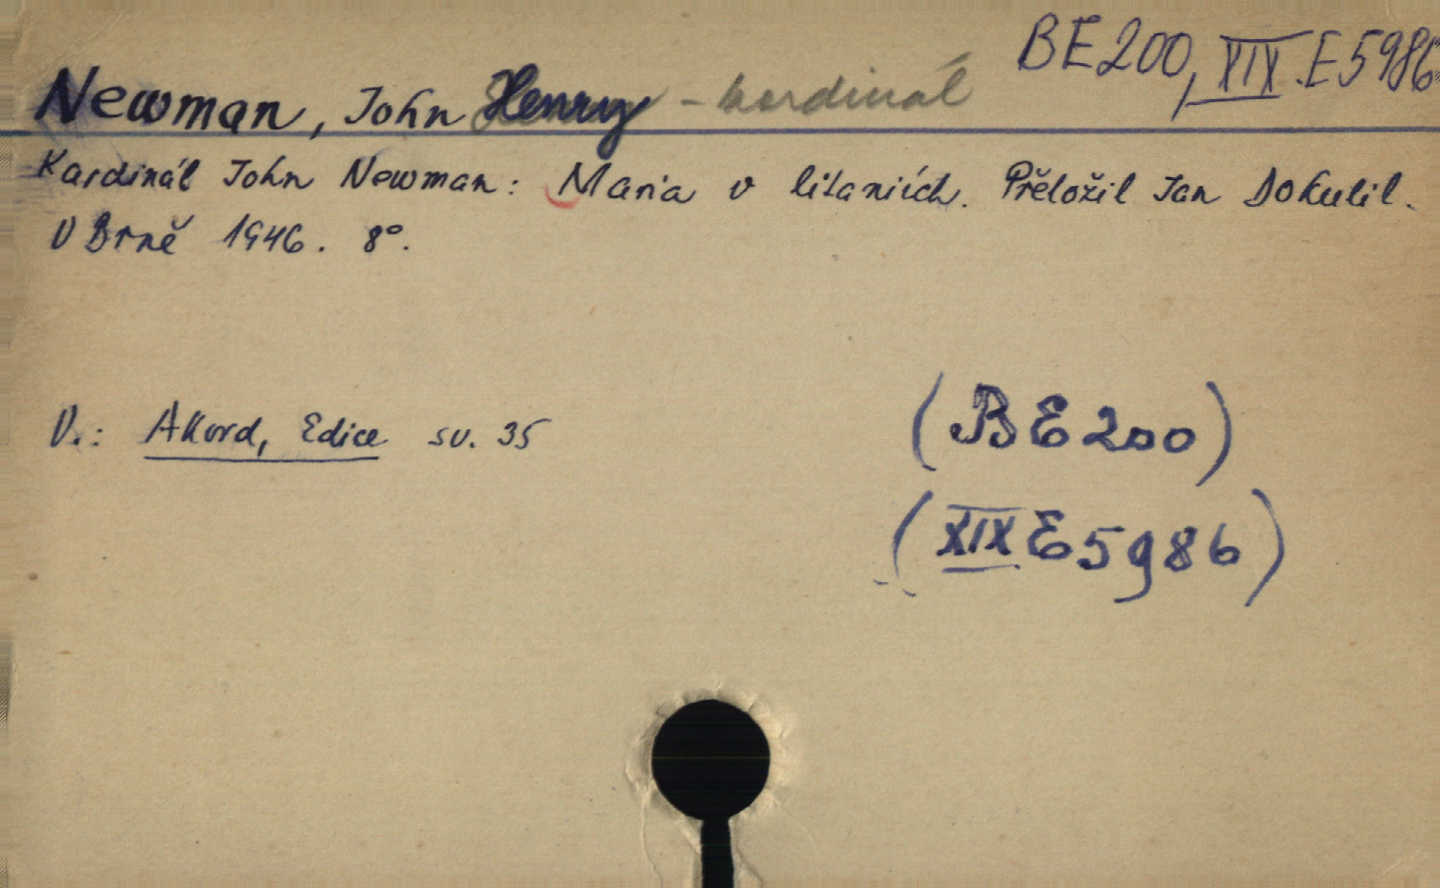 BE200, XIX.E5986
Newman, John Henry - kardinál
Kardinál John Newman: Maria v litaniích. Přeložil Jan Dokulil.
V Brně 1946. 8°.
V.: Akord, Edice sv. 35
(BE200)
(XIX E5986)